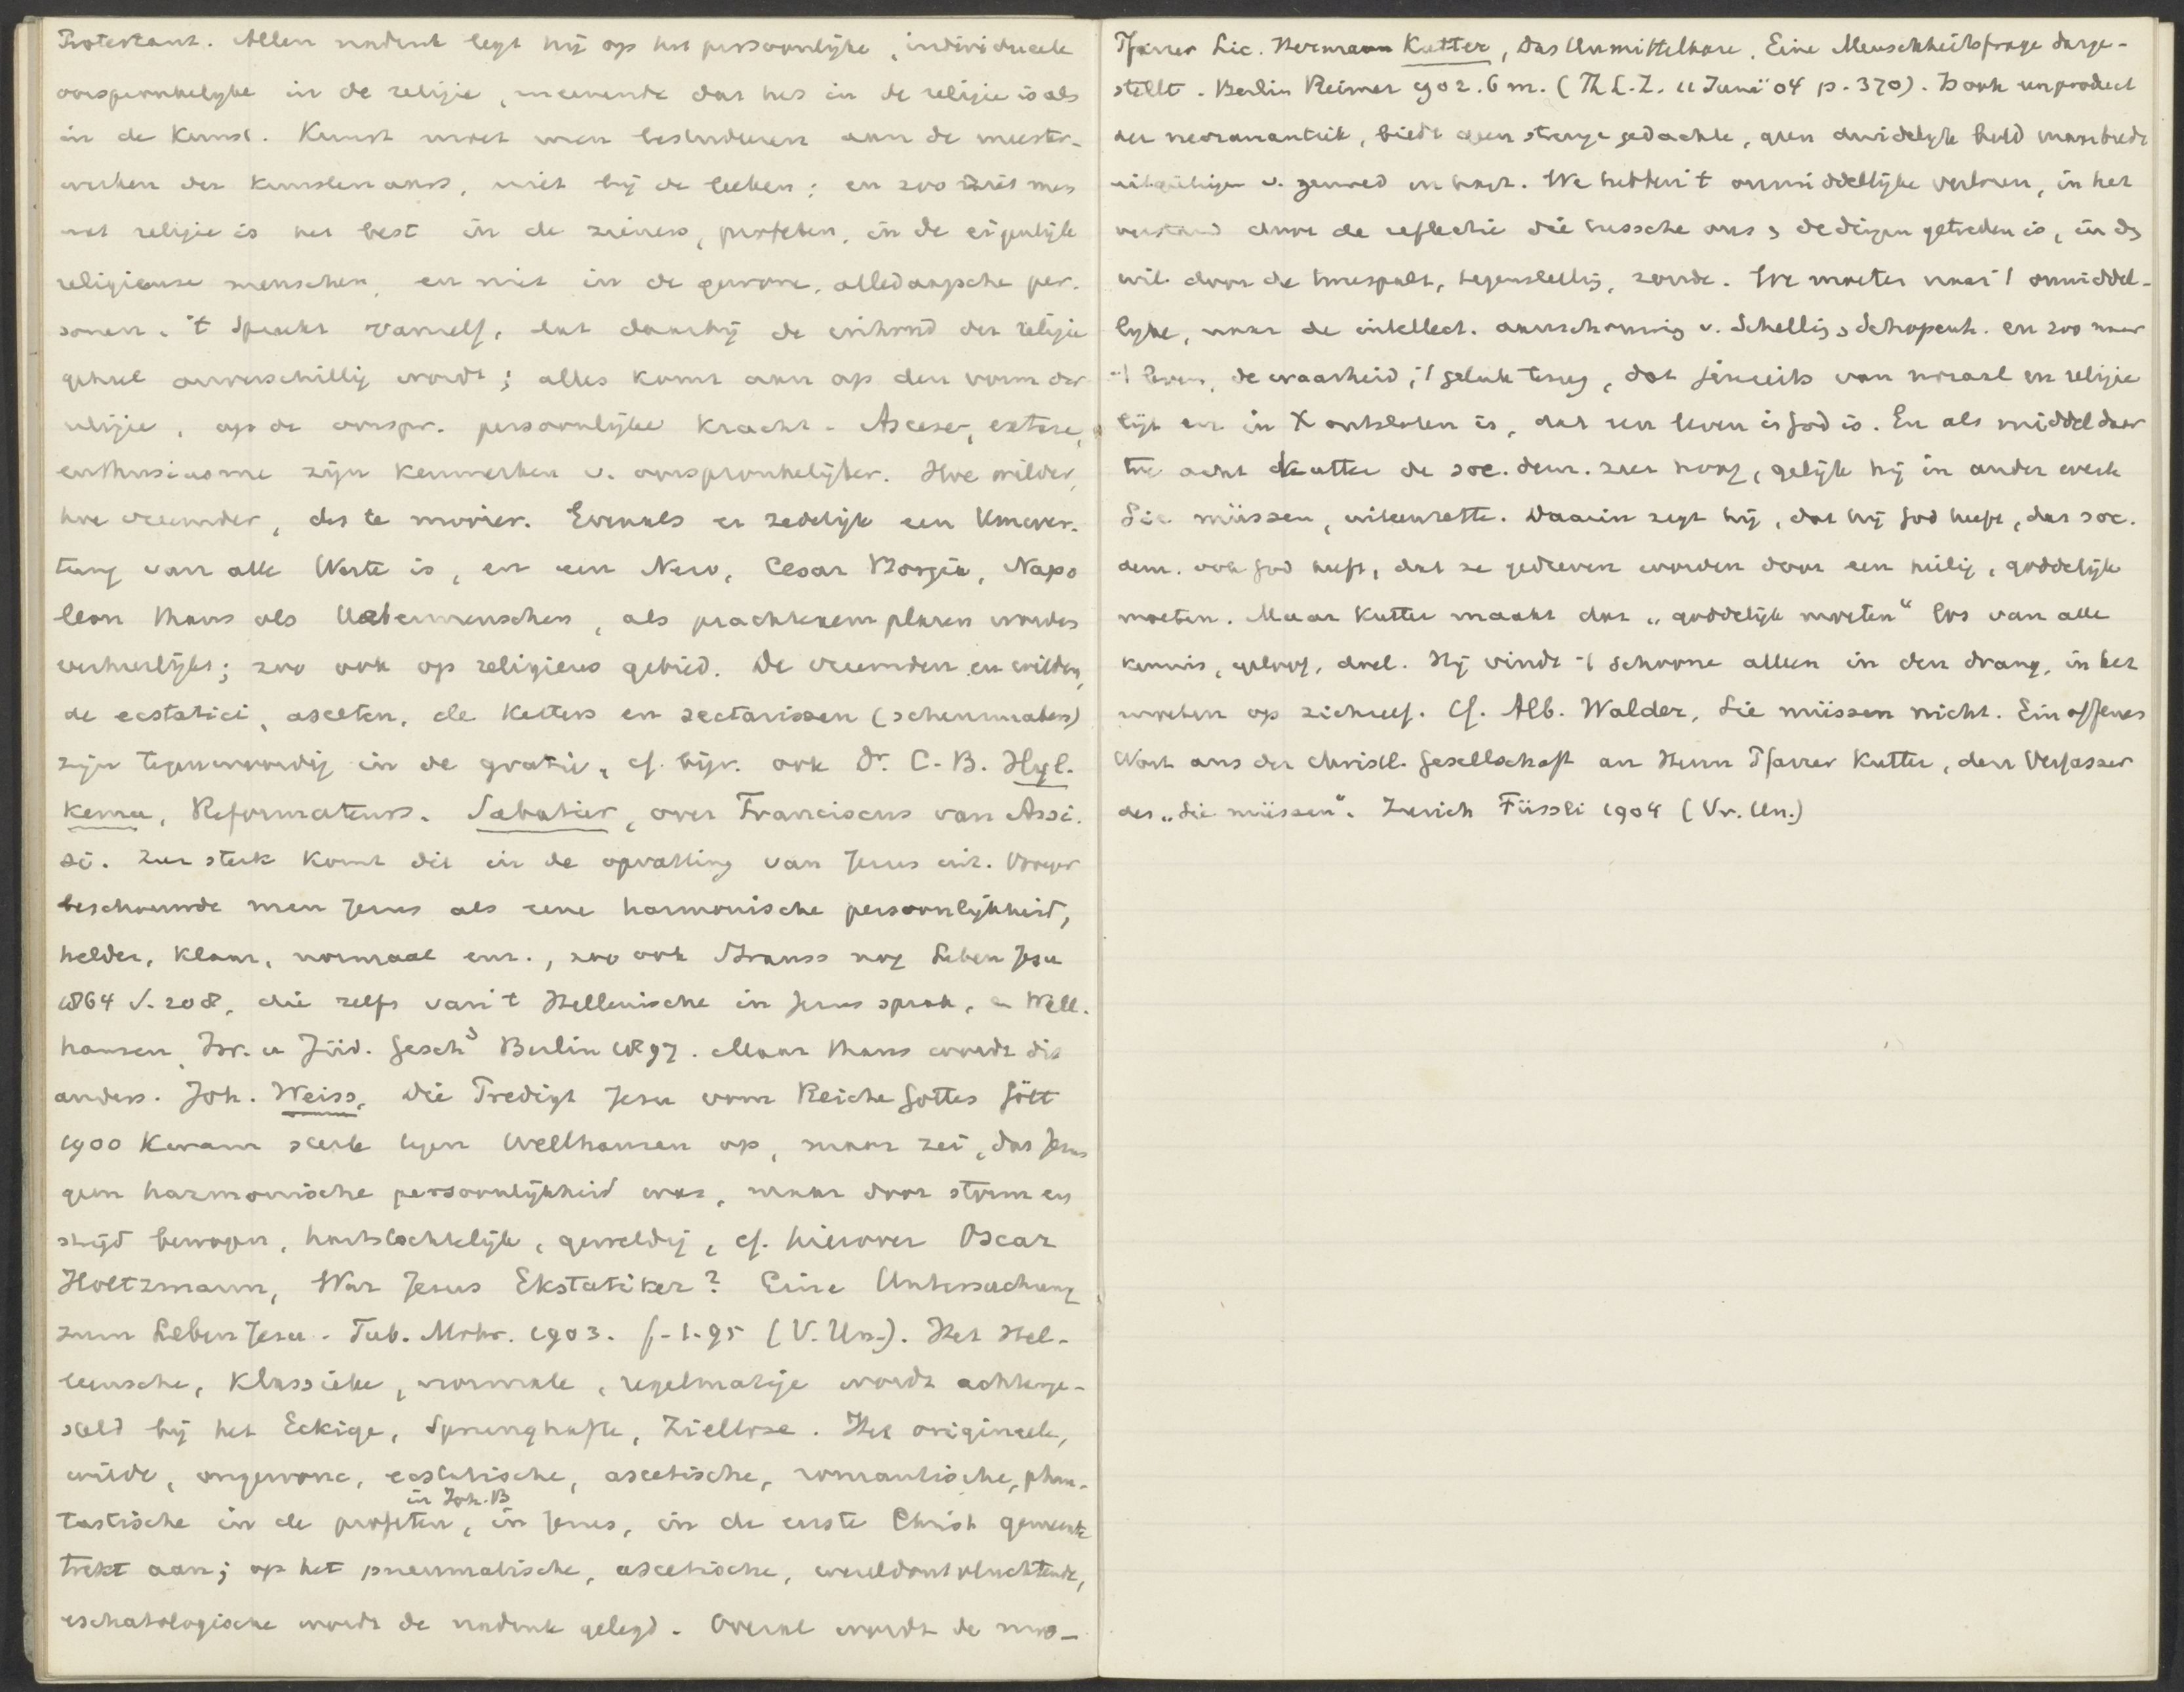 Protestant. Alleen nadruk legt hij op het persoonlijke, individueele
oorspronkelijke in de religie, meenende dat het in de religie is als
in de Kunst. Kunst moet men bestudeeren aan de meester-
werken der kunstenaars, niet bij de leeken; en zoo ziet men
wat religie is het best in de zieners, profeten, in de eigenlijke
religieuse menschen, en niet in de gewone, alledaagsche per-
sonen. 't Spreekt vanzelf, dat daarbij de inhoud der religie
geheel onverschillig wordt; alles komt aan op den vorm der
religie, op de oorspr. persoonlijke kracht. Ascese, extase,
enthusiasme zijn kenmerken v. oorspronkelijkh. Hoe wilder,
hoe vreemder, des te mooier. Evenals er zedelijk een Umwer-
tung van alle Werte is, en een Nero, Cesar Borgia, Napo
leon thans als Uebermenschen, als prachtexemplaren worden
verheerlijkt; zoo ook op religieus gebied. De vreemden en wilden,
de ecstatici, asceten, de Ketters en sectarissen (scheurmakers)
zijn tegenwoordig in de gratie, cf. bijv. ook Dr. C. B. Hyl-
kema, Reformateurs. Sabatier, over Franciscus van Assi-
si. Zeer sterk komt dit in de opvatting van Jezus uit. Vroeger
beschouwde men Jezus als eene harmonische persoonlijkheid,
helder, klaar, normaal enz., zoo ook Strauss nog Leben Jesu
1864 S. 208, die zelfs van 't Hellenische in Jezus sprak, en Well-
hausen, Isr. u Jüd. Gesch³ Berlin 1897. Maar thans wordt dit
anders. Joh. Weiss, Die Predigt Jesu vom Reiche Gottes Gött
1900 Kwam sterk tegen Wellhausen op, maar zei, dat Jezus
geen harmonische persoonlijkheid was, maar door storm en
strijd bewogen, hartstochtelijk, geweldig, cf. hierover Oscar
Holtzmann, War Jesus Ekstatiker? Eine Untersuchung
zum Leben Jesu. Tub. Mohr. 1903. (V. Un.). Het Hel-
leensche, Klassieke, normale, regelmatige wordt achterge-
steld bij het Eckige, Sprunghafte, Ziellose. Het origineele,
wilde, ongewone, ecstatische, ascetische, romantische, phan-
in Joh. B
tastische in de profeten, in Jezus, in de eerste Christ gemeente
trekt aan; op het pneumatische, ascetische, wereldontvluchtende,
eschatologische wordt de nadruk gelegd. Overal wordt de neo-
Pfarrer Lic. Hermann Kutter, Das Unmittelbare. Eine Menschheitsfrage darge-
stellt. Berlin Reimer 1902. 6 m. (Th L. Z. 11 Juni '04 p. 370). Is ook een product
der neoromantiek, biedt geen strenge gedachte, geen duidelijk beeld maar breede
v. gemoed en hart. We hebben 't onmiddellijke verloren, in het
verstand door de reflectie die tussche ons en de dingen getreden is, in den
wil door de tweespalt, tegenstelling, zonde. We moeten naar 't onmiddel-
lijke, naar de intellect. aanschouwing v. Schelling en Schopenh. en zoo naar
't leven, de waarheid, 't geluk terug, dat jenseits van moraal en religie
ligt en in X ontsloten is, dat een leven is God is. En als middel daar
toe acht Kutter de soc. dem. zeer hoog, gelijk hij in ander werk
Sie müssen, uiteenzette. Daarin zegt hij, dat hij God heeft, dat soc.
dem. ook God heeft, dat ze gedreven worden door een heilig, goddelijk
moeten. Maar Kutter maakt dat „goddelijk moeten" los van alle
kennis, geloof, doel. Hij vindt 't schoone alleen in den drang, in het
moeten op zichzelf. Cf. Alb. Walder, Sie müssen nicht. Ein offenes
Wort aus der christl. Gesellschaft an Herrn Pfarrer Kutter, den Verfasser
des „Sie müssen". Zurich Füssli 1904 (Vr. Un.)